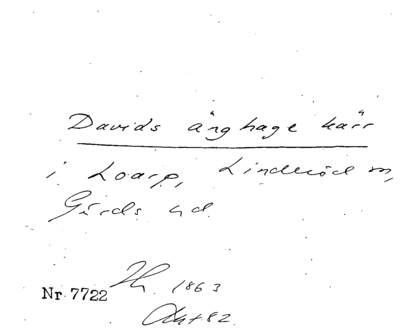 Davids änghage kärr
i Loarp, Linderöd sn,
Gärds hd.
Nr 7722 1863
Okt 82